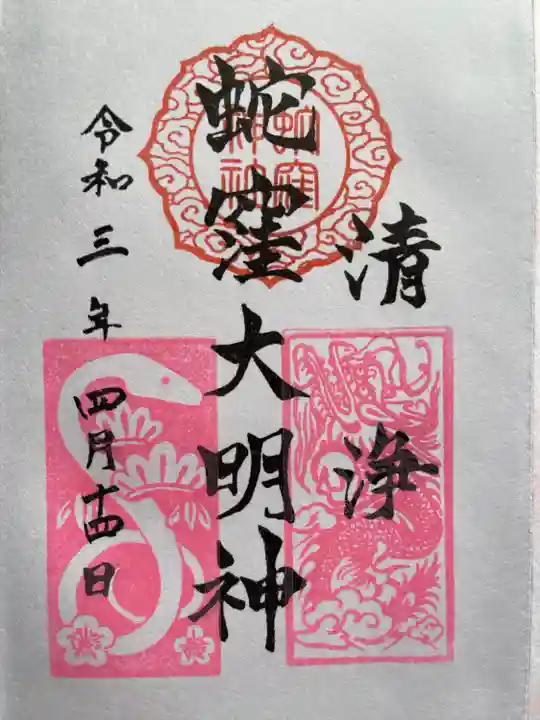 清浄
蛇窪大明神
蛇窪神社
令和三年四月十四日